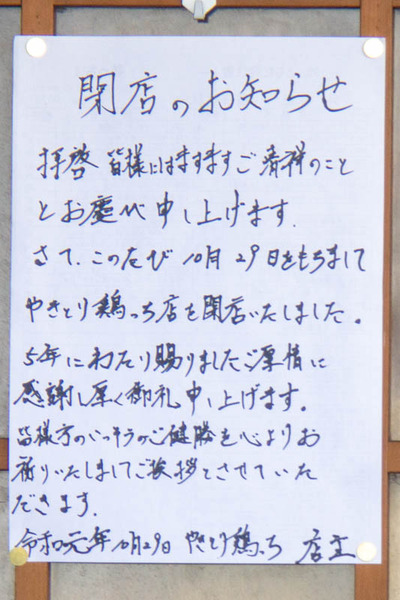 閉店のお知らせ
拝啓 皆様にはますますご清祥のこと
とお慶び申し上げます.
さて.このたび 10月 29日をもちまして
やきとり鶏っち店を閉店いたしました。
5年にわたり賜りましたご厚情に
感謝し厚く御礼申し上げます。
皆様方のいっそうのご健勝を心よりお
祈りいたしましてご挨拶とさせていた
だきます.
令和元年10月29日 やきとり鶏っち 店主